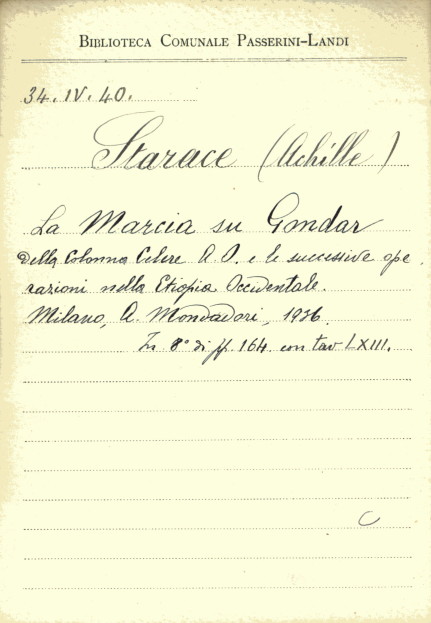 BIBLIOTECA COMUNALE PASSERINI-LANDI
34. IV. 40.
Starace (Achille)
La Marcia su Gondar
della Colonna Celere A. O. e le successive ope
razioni nella Etiopia Occidentale.
Milano, A. Mondadori, 1936.
In 8° di pp. 164 con tav LXIII.
C